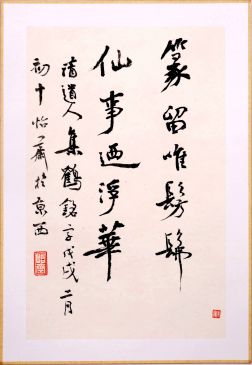 篆留唯髣髴
仙事迺浮華
清道人集鶴銘字戊戌二月
初十怡齋於京西